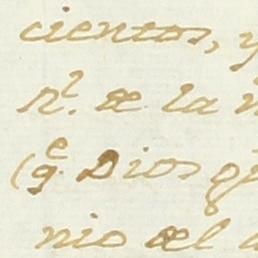 cientos, y
n.^l de la
(q.^e Dios g
nio del